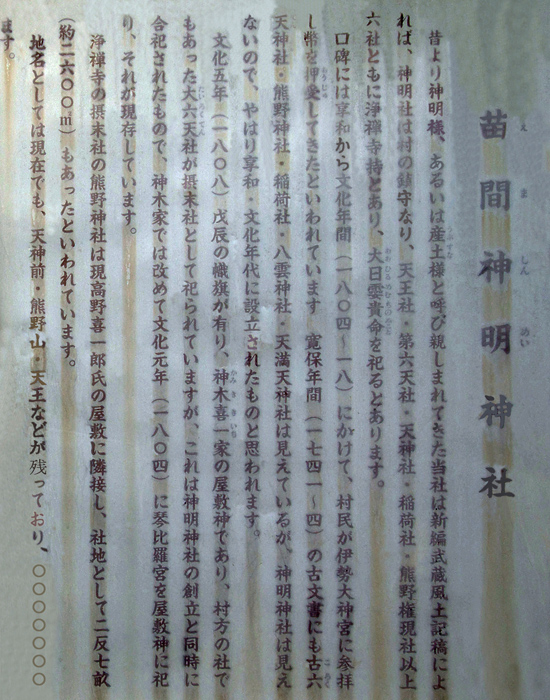 苗間神明神社
えましんめい
昔より神明様、あるいは産土様と呼び親しまれてきた当社は新編武蔵風土記稿によ
うぶすな
れば、神明社は村の鎮守なり、天王社・第六天社・天神社・稲荷社・熊野権現社以上
六社ともに浄禅寺持とあり、大日孁貴命を祀るとあります。
おおひるめむちのみこと
口碑には享和から文化年間（一八〇四～一八）にかけて、村民が伊勢大神宮に参拝
し幣を押受してきたといわれています 寛保年間（一七四一～四）の古文書にも古六
天神社・熊野神社・稲荷社・八雲神社・天満天神社は見えているが、神明神社は見え
ないので、やはり享和・文化年代に設立されたものと思われます。
文化五年（一八〇八）戊辰の幟旗が有り、神木喜一家の屋敷神であり、村方の社で
かみききいち
もあった大六天社が摂末社として祀られていますが、これは神明神社の創立と同時に
だいろくてん
合祀されたもので、神木家では改めて文化元年（一八〇四）に琴比羅宮を屋敷神に祀
り、それが現存しています。
浄禅寺の摂末社の熊野神社は現高野喜一郎氏の屋敷に隣接し、社地として二反七畝
（約二六〇〇㎡）もあったといわれています。
地名としては現在でも、天神前・熊野山・天王などが残っており、〇〇〇〇〇〇〇
ます。